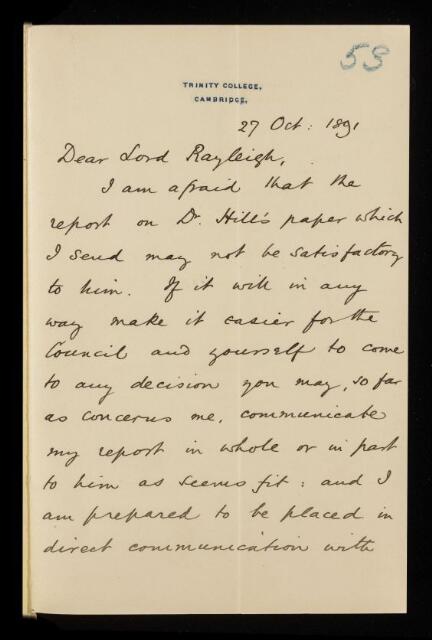 53
TRINITY COLLEGE,
CAMBRIDGE.
27 Oct: 1891
Dear Lord Rayleigh,
I am afraid that the
report on Dr. Hill's paper which
I send may not be satisfactory
to him. If it will in any
way make it easier for the
Council and yourself to come
to any decision you may, so far
as concerns me, communicate
my report in whole or in part
to him as seems fit: and I
am prepared to be placed in
direct communication with